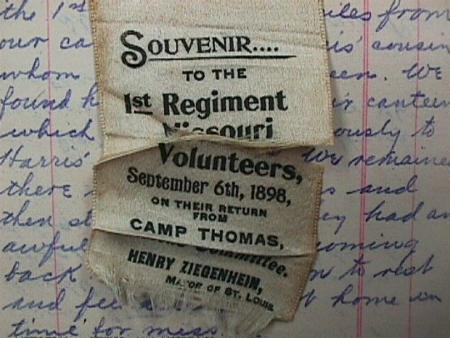 the 1st iles from
our ca is' cousin
whom en. We
found h ir canteen
which ously to
Harris' We remaine
there s and
then st ey had an
awfu oming
back n to rest
and fe t home in
time for mess.
SOUVENIR....
TO THE
1st Regiment
Missouri
Volunteers,
September 6th, 1898,
ON THEIR RETURN
FROM
CAMP THOMAS,
Committee.
HENRY ZIEGENHEIN,
MAYOR OF ST. LOUIS